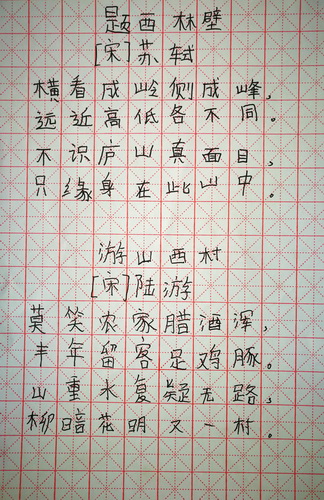 题西林壁
[宋]苏轼
横看成岭侧成峰，
远近高低各不同。
不识庐山真面目，
只缘身在此山中。
游山西村
[宋]陆游
莫笑农家腊酒浑，
丰年留客足鸡豚。
山重水复疑无路，
柳暗花明又一村。